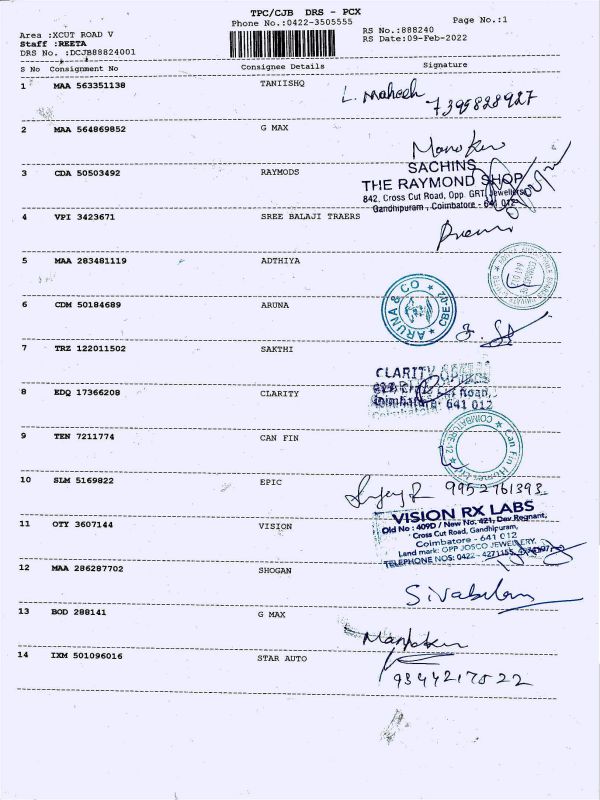 TPC/CJB DRS - PCX
Phone No.:0422-3505555
Page No.:1
Area :XCUT ROAD V
Staff :REETA
DRS No. :DCJB88824001
RS No.:888240
RS Date:09-Feb-2022
S No Consignment No Consignee Details Signature
1 MAA 563351138 TANIISHQ L. Mahesh 7395828927
2 MAA 564869852 G MAX
3 CDA 50503492 RAYMODS
SACHINS
THE RAYMOND SHOP
842, Cross Cut Road, Opp. GRT. Jewellers
Gandhipuram, Coimbatore - 641 012
4 VPI 3423671 SREE BALAJI TRAERS
5 MAA 283481119 ADTHIYA
6 CDM 50184689 ARUNA
ARUNA & CO
CBE-02
7 TRZ 122011502 SAKTHI
8 EDQ 17366208 CLARITY
CLARITY
Road,
641 012
9 TEN 7211774 CAN FIN
Can Fin Homes Ltd
COIMBATORE-12
10 SLM 5169822 EPIC 9952761393
11 OTY 3607144 VISION
VISION RX LABS
Old No : 409D / New No. 421, Dev Regnant,
Cross Cut Road, Gandhipuram,
Coimbatore - 641 012
Land mark: OPP JOSCO JEWELLERY,
TELEPHONE NOS: 0422 - 4271155,
12 MAA 286287702 SHOGAN
13 BOD 288141 G MAX
14 IXM 501096016 STAR AUTO 9344217522